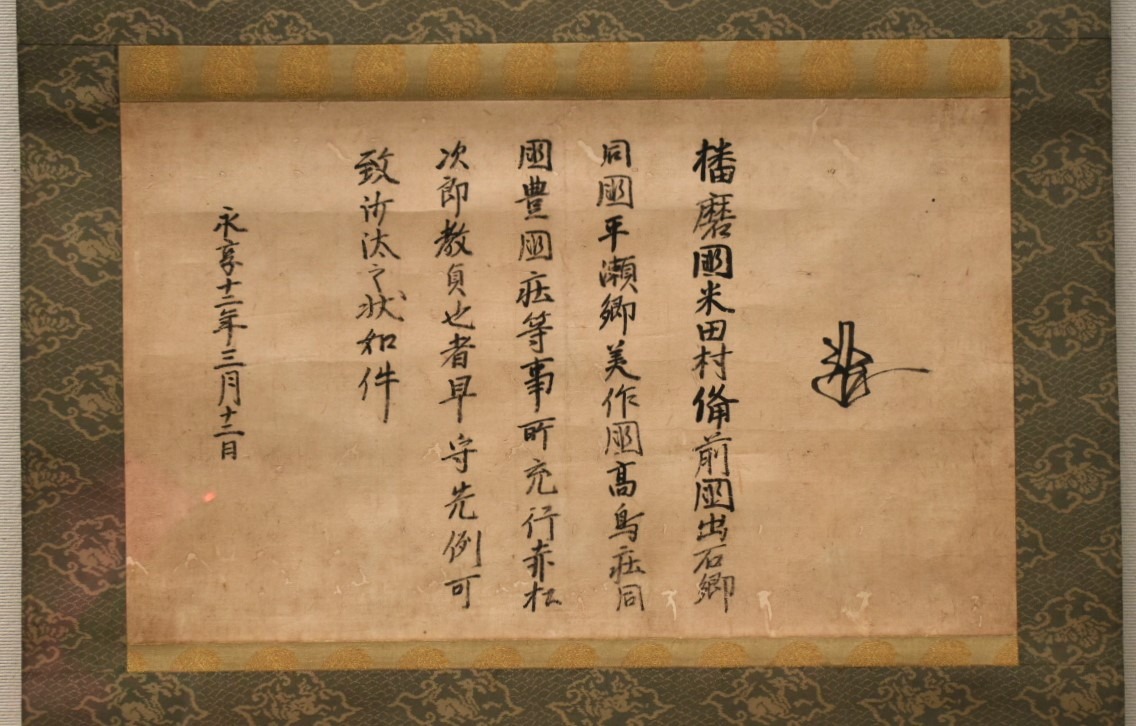 播磨國米田村備前國出石郷
同國平瀬郷美作國高鳥庄同
國豊國庄等事所充行赤松
次郎教貞也者早守先例可
致沙汰之状如件
永享十二年三月十二日